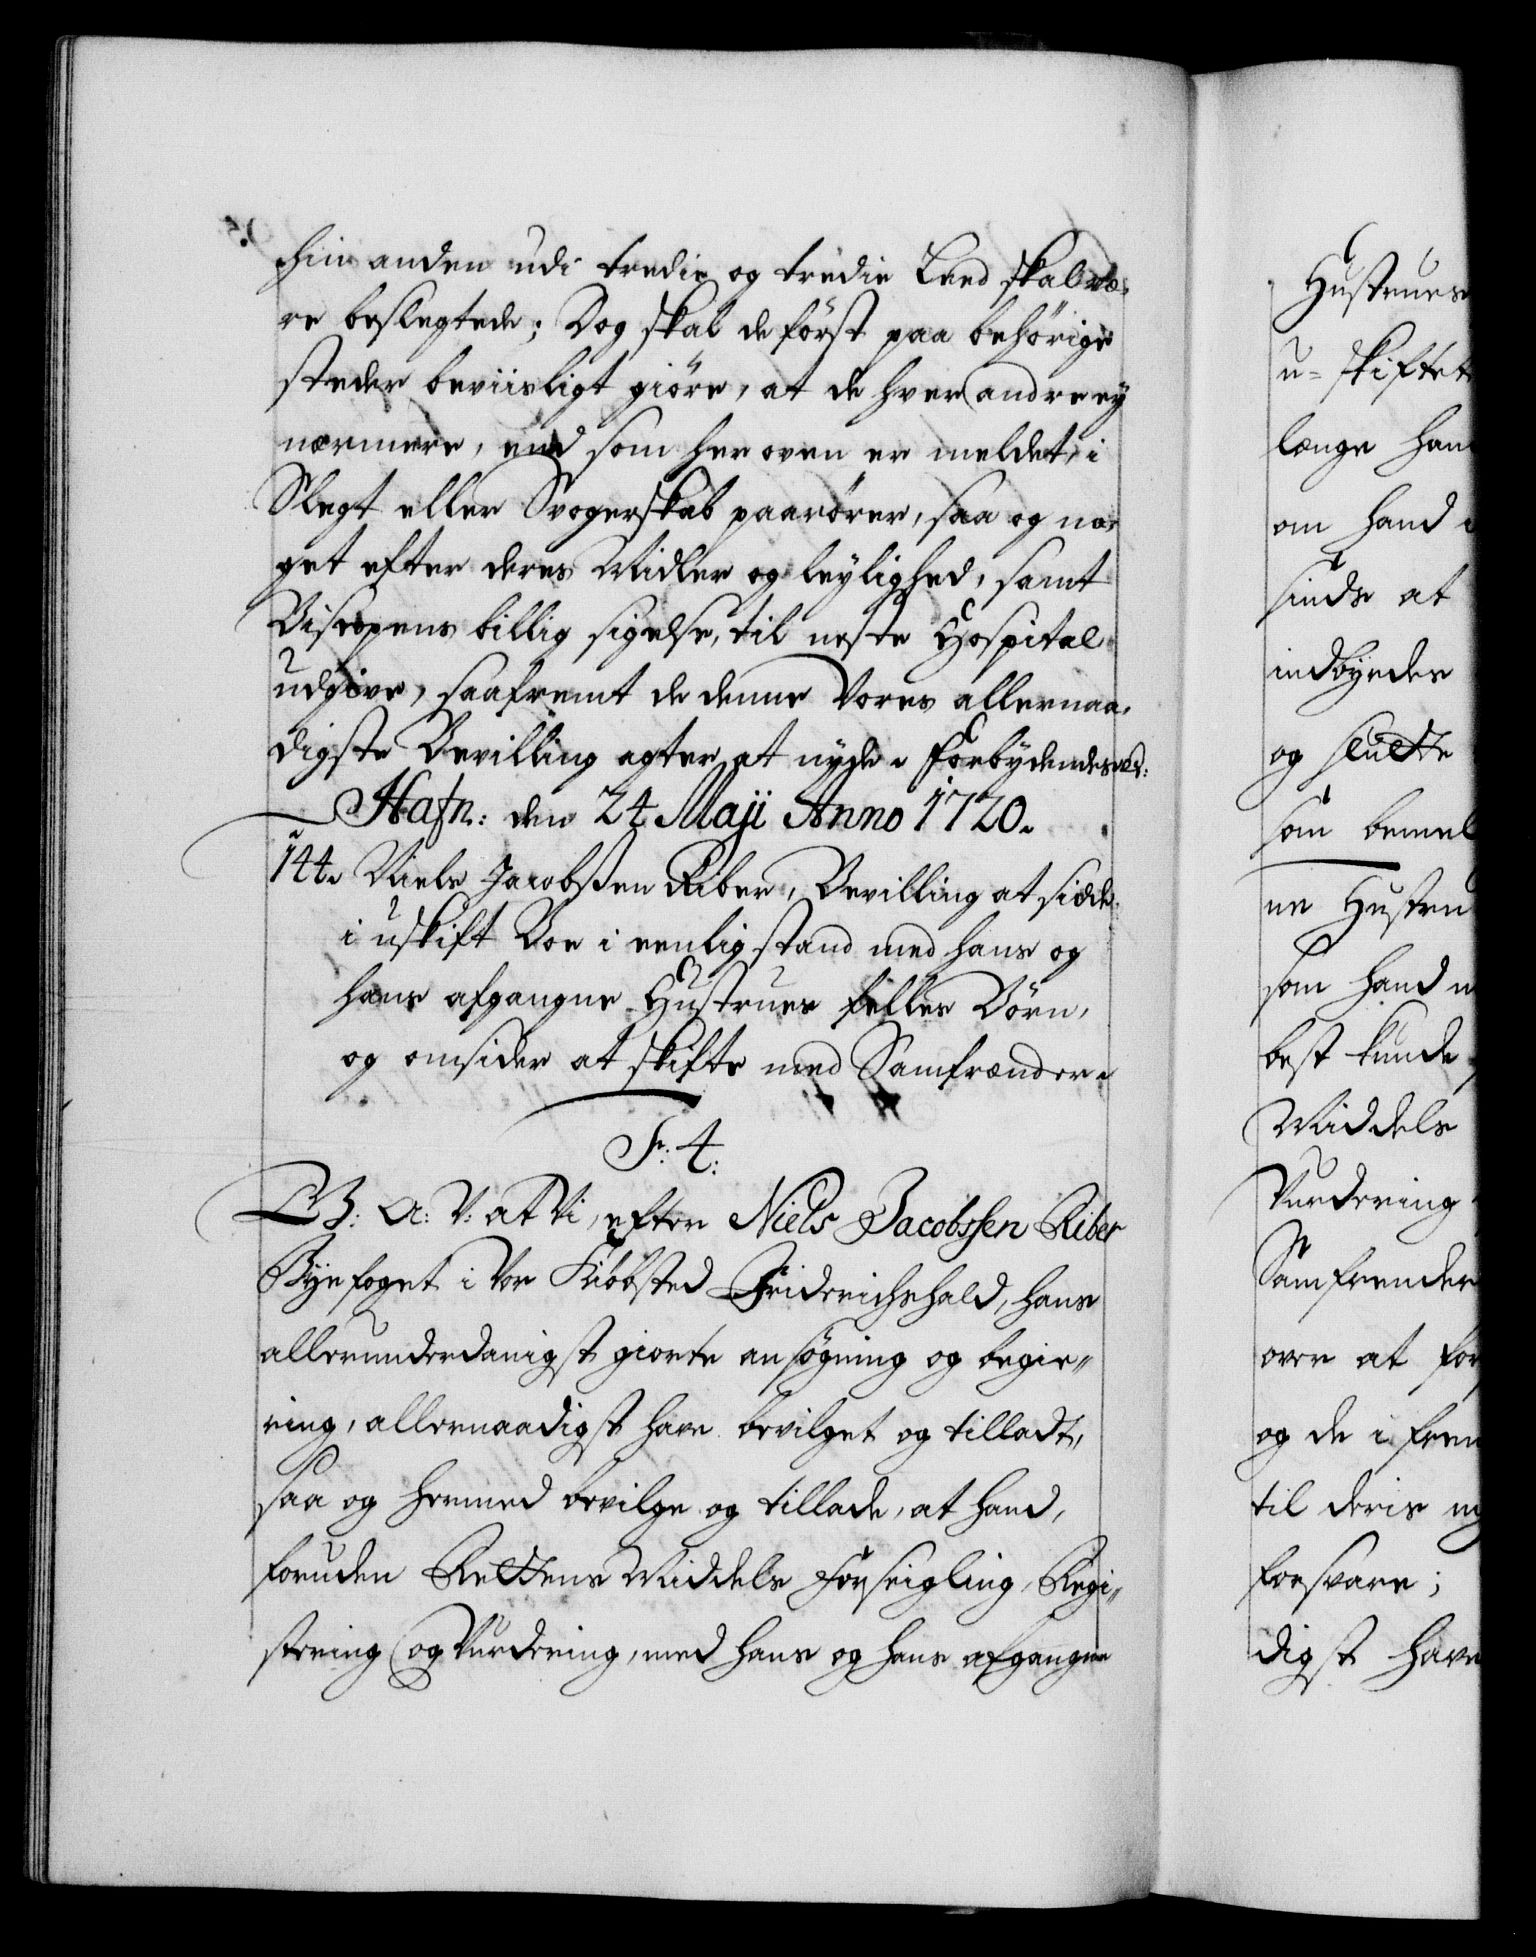 hin anden udi tredie og tredie Leed skal væ-
re beslegtede; Dog skal de först paa behörige
steder beviisligt giöre, at de hver andre ey
nærmere, end som her oven er meldet, i
Slegt eller Svogerskab paarörer, saa og no-
get efter deres Midler og leylighed, samt
Biscopens billig sigelse, til neste Hospital
udgive, saafremt de denne Vores allernaa-
digste Bevilling agter at nyde. Forbydendes etc:
Hafn: den 24 Maji Anno 1720.
144. Niels Jacobssen Riber, Bevilling at sidde
i uskift Boe i eenlig stand med hans og
hans afgangne Hustrues felles Börn,
og omsider at skifte med Samfrænder.
F: 4:
G: A: V: at Vi, efter Niels Jacobssen Riber
Byefoget i Vor Kiöbsted Friderichshald, hans
allerunderdanigst giorte ansögning og begie-
ring, allernaadigst have bevilget og tilladt,
saa og hermed bevilge og tillade, at hand,
foruden Rettens Middels Forseigling, Regi-
stering og Vurdering, med hans og hans afgangne
Hustrues
u-skiftet
længe hand
om hand
sinds at
indbyrdes
og slutte
som bemel
ne Hustru
som hand
best kunde
Middels
Vurdering
Samfrender
over at for
og de i frem
til deris
forsvare;
digst have